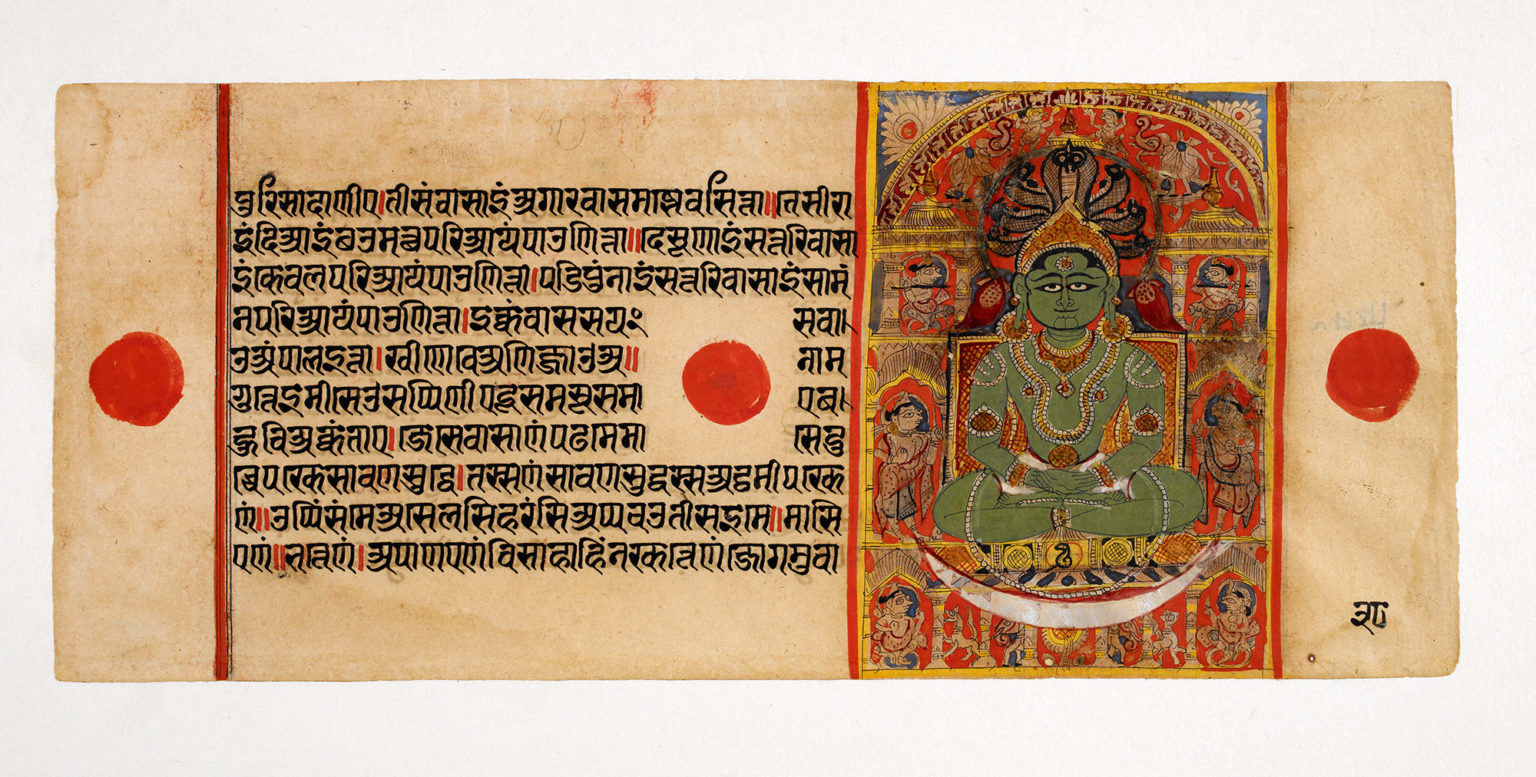 पुरिसादाणीए।तीसं वासाइं अगारवासमज्झे वसित्ता॥तेसीरा
इंदिआइं छउमत्थपरिआयं पाउणित्ता॥देसूणाइं सत्तरिवासा
इं केवलपरिआयं पाउणित्ता।पडिपुंनाइं सत्तरिवासाइं सामं
नपरिआयं पाउणित्ता।इक्कं वाससयं सवा
उअं पालइत्ता।खीणे वेअणिज्जाउअ॥नाम
गुत्ते इमीसे उसप्पिणीए दूसमसूसमाए बहु
विइक्कंताए।जे से वासाणं पढमे मासे दु
च्चे पक्खे सावणसुद्धे।तस्सणं सावणसुद्धस्स अट्ठमीपक्खे
णं॥उप्पिं संमेअसेलसिहरंसि अप्पचउतीसइमे॥मासि
एणं॥भत्तेणं।अपाणएणं विसाहाहिं नक्खत्तेणं जोगमुवा
३८